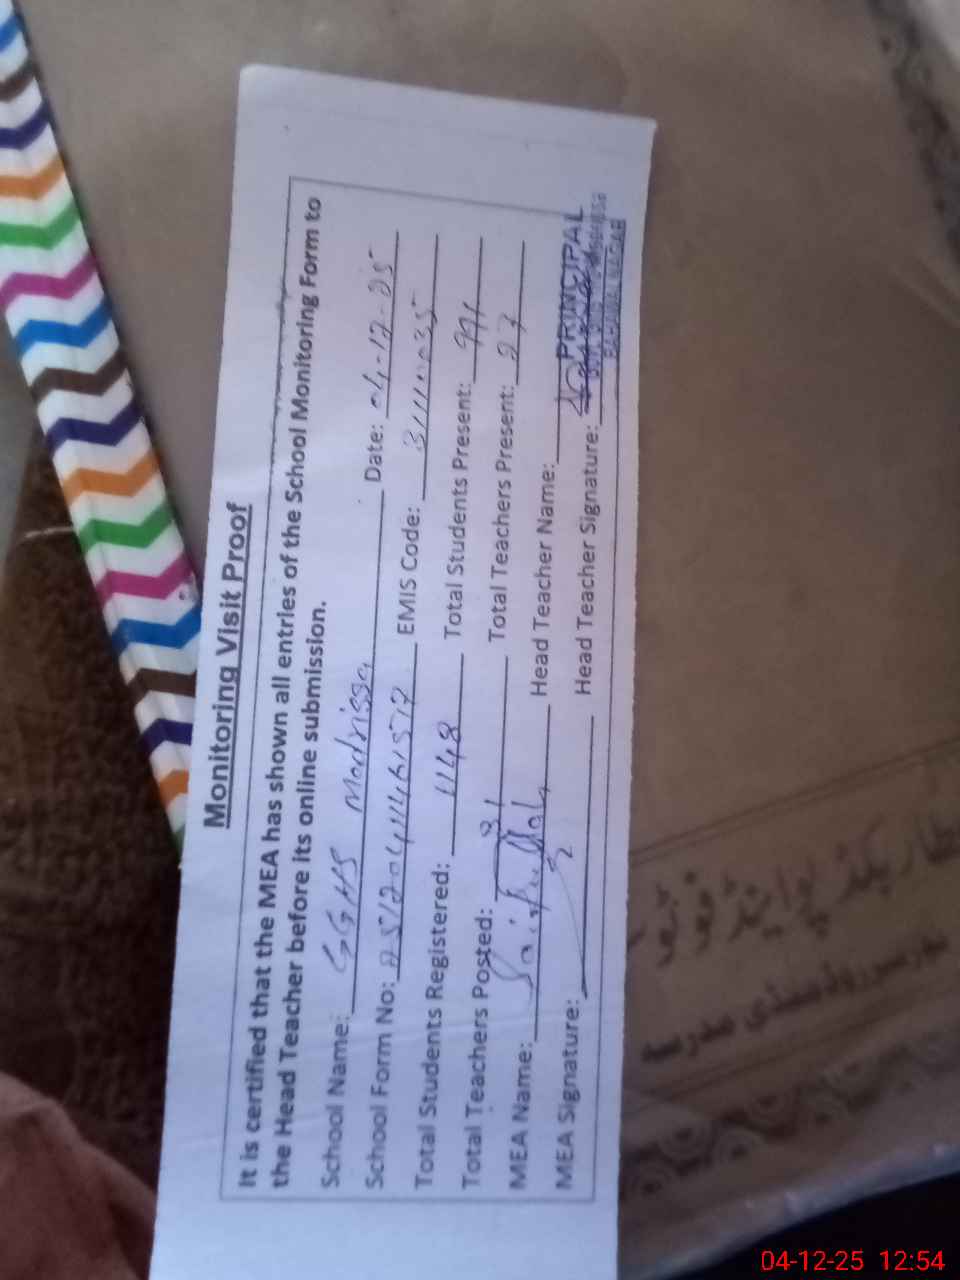 Monitoring Visit Proof
It is certified that the MEA has shown all entries of the School Monitoring Form to
the Head Teacher before its online submission.
School Name: GGHS Madrissa Date: 04-12-25
School Form No: EMIS Code:
Total Students Registered: 1148 Total Students Present: 991
Total Teachers Posted: 31 Total Teachers Present: 27
MEA Name: Saif Ullah Head Teacher Name:
MEA Signature: Head Teacher Signature:
PRINCIPAL
BAHAWALNAGAR
04-12-25 12:54